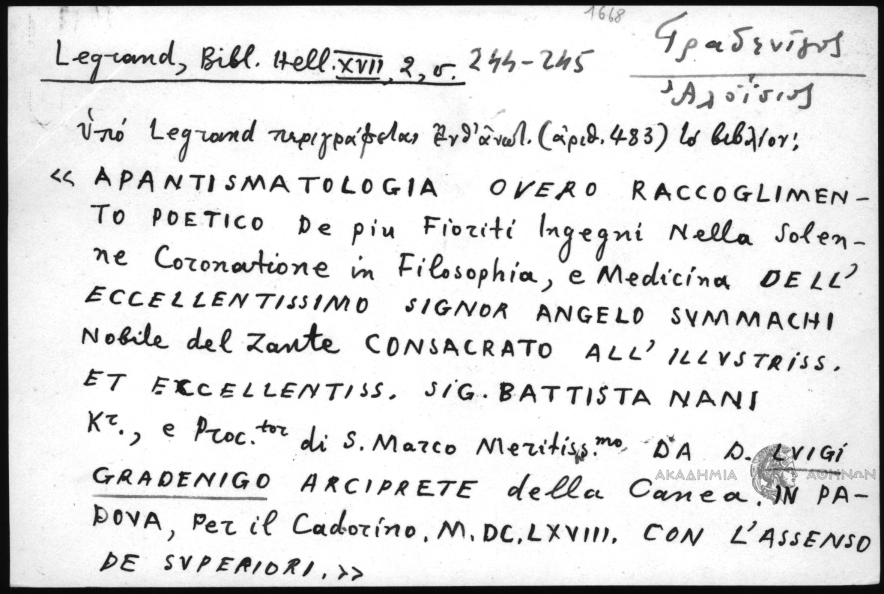 1668
Legrand, Bibl. Hell. XVII, 2, σ. 244-245
Γραδενίγος
Ἀλοΐσιος
ὑπό Legrand περιγράφεται ἐνθ' ἀνωτ. (ἀριθ. 483) τό βιβλίον:
« APANTISMATOLOGIA OVERO RACCOGLIMEN-
TO POETICO De piu Fioriti Ingegni Nella Solen-
ne Coronatione in Filosophia, e Medicina DELL'
ECCELLENTISSIMO SIGNOR ANGELO SVMMACHI
Nobile del Zante CONSACRATO ALL' ILLVSTRISS.
ET EXCCELLENTISS. SIG. BATTISTA NANI
Kr., e Proc.tor di S. Marco Meritiss.mo DA D. LVIGI
ΑΚΑΔΗΜΙΑ ΑΘΗΝΩΝ
GRADENIGO ARCIPRETE della Canea. IN PA-
DOVA, Per il Cadorino. M.DC.LXVIII. CON L'ASSENSO
DE SVPERIORI. »